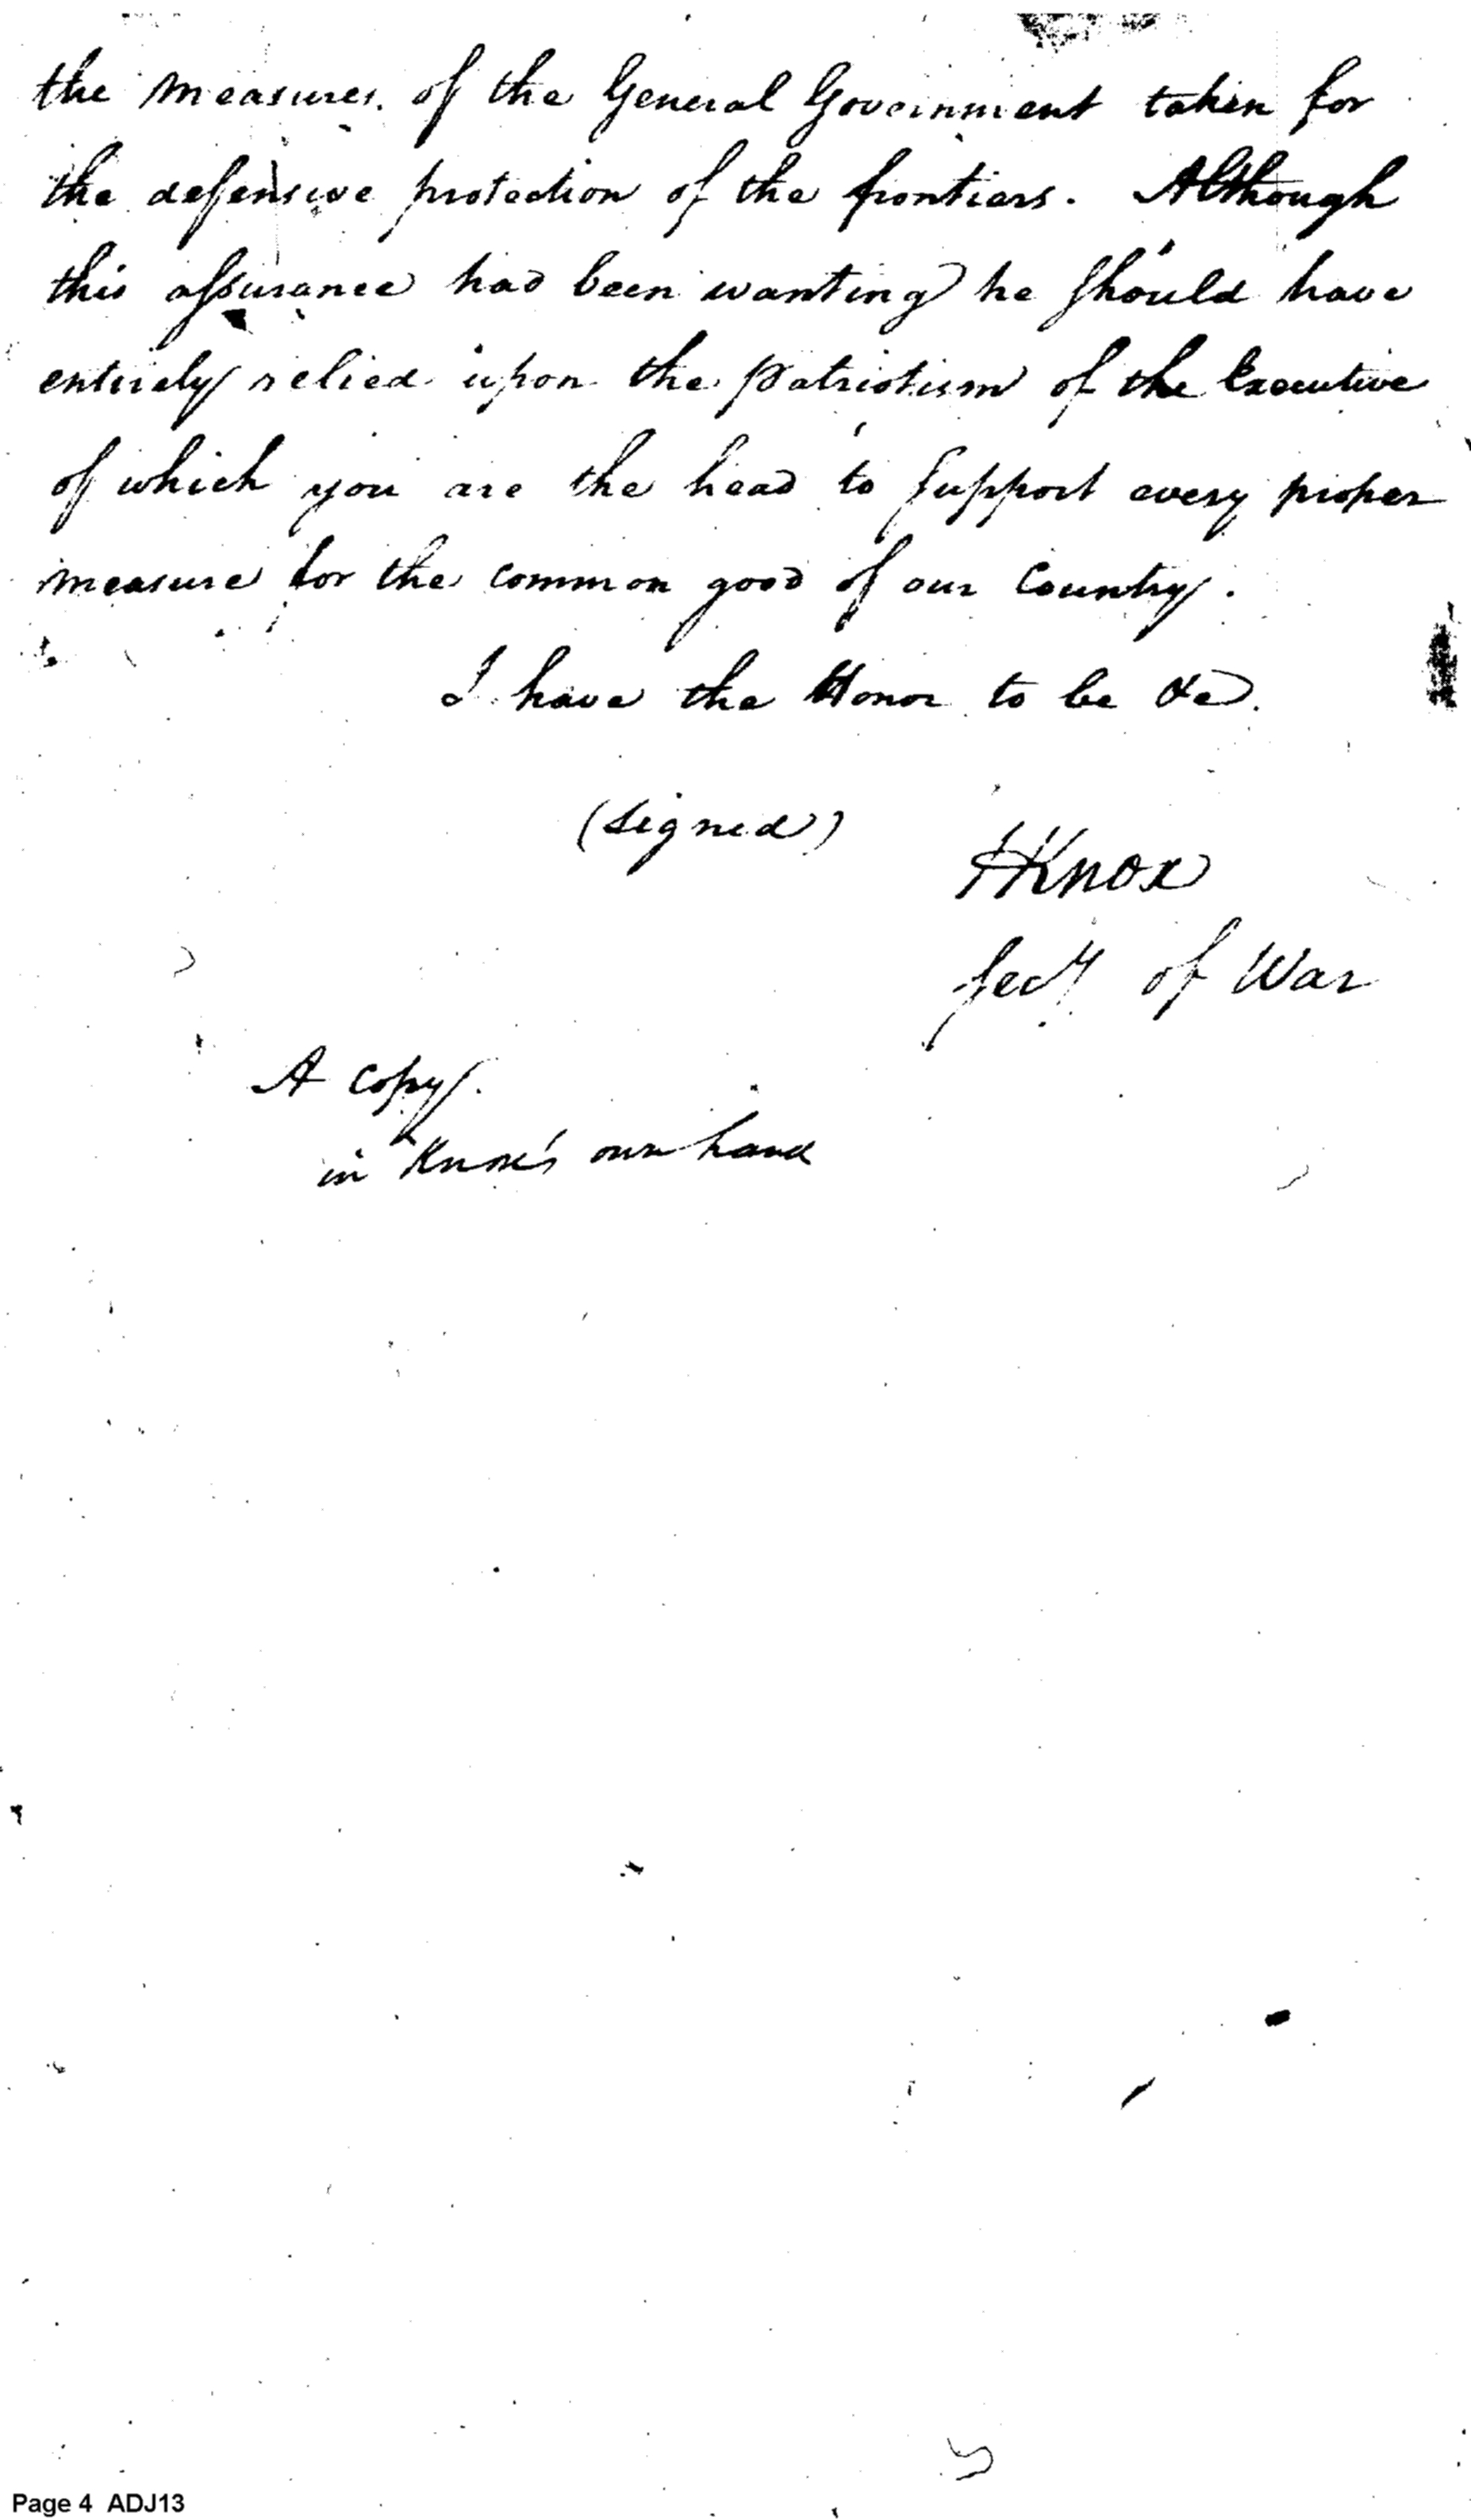 the measures of the General Government taken for
the defensive protection of the frontiers. Although
this assurance had been wanting he should have
entirely relied upon the patriotism of the Executive
of which you are the head to support every proper
measure for the common good of our Country.
I have the Honor to be &c.
(signed)
HKnox
Secy of War
A Copy.
in Knox's own hand
Page 4 ADJ13